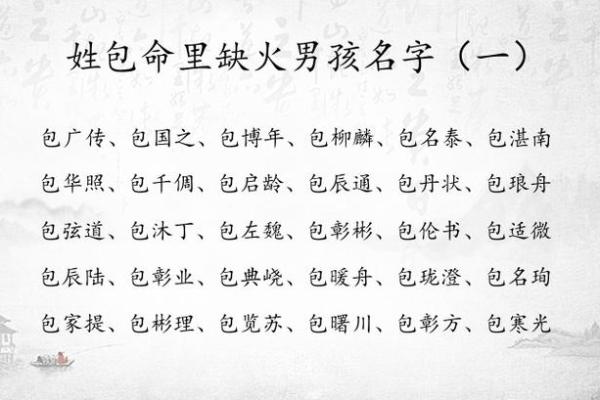 姓包命里缺火男孩名字（一）
包广传、包国之、包博年、包柳麟、包名泰、包湛南
包华照、包千倜、包启龄、包辰通、包丹状、包琅舟
包弦道、包沐丁、包左魏、包彰彬、包伦书、包适微
包辰陆、包彰业、包典峣、包暖舟、包珑澄、包名珣
包家提、包彬理、包览苏、包曙川、包彰方、包寒光